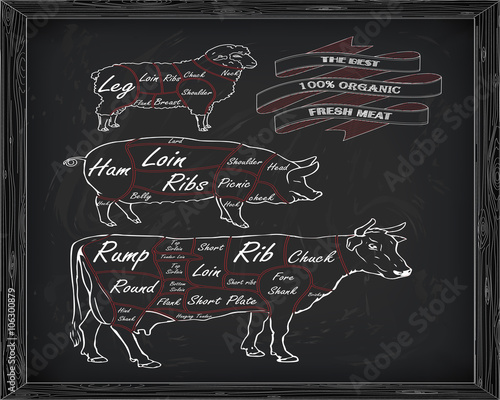 THE BEST
100% ORGANIC
FRESH MEAT
Leg
Loin
Ribs
Chuck
Neck
Shoulder
Flank
Breast
Lard
Ham
Loin
Ribs
Shoulder
Head
Picnic
Belly
Hock
Hock
cheek
Rump
Round
Top
Sirloin
Tender Loin
Top
Sirloin
Bottom
Sirloin
Short
Loin
Rib
Chuck
Short ribs
Fore
Shank
Flank
Short Plate
Hind
Shank
Hanging Tender
Adobe Stock
106300879